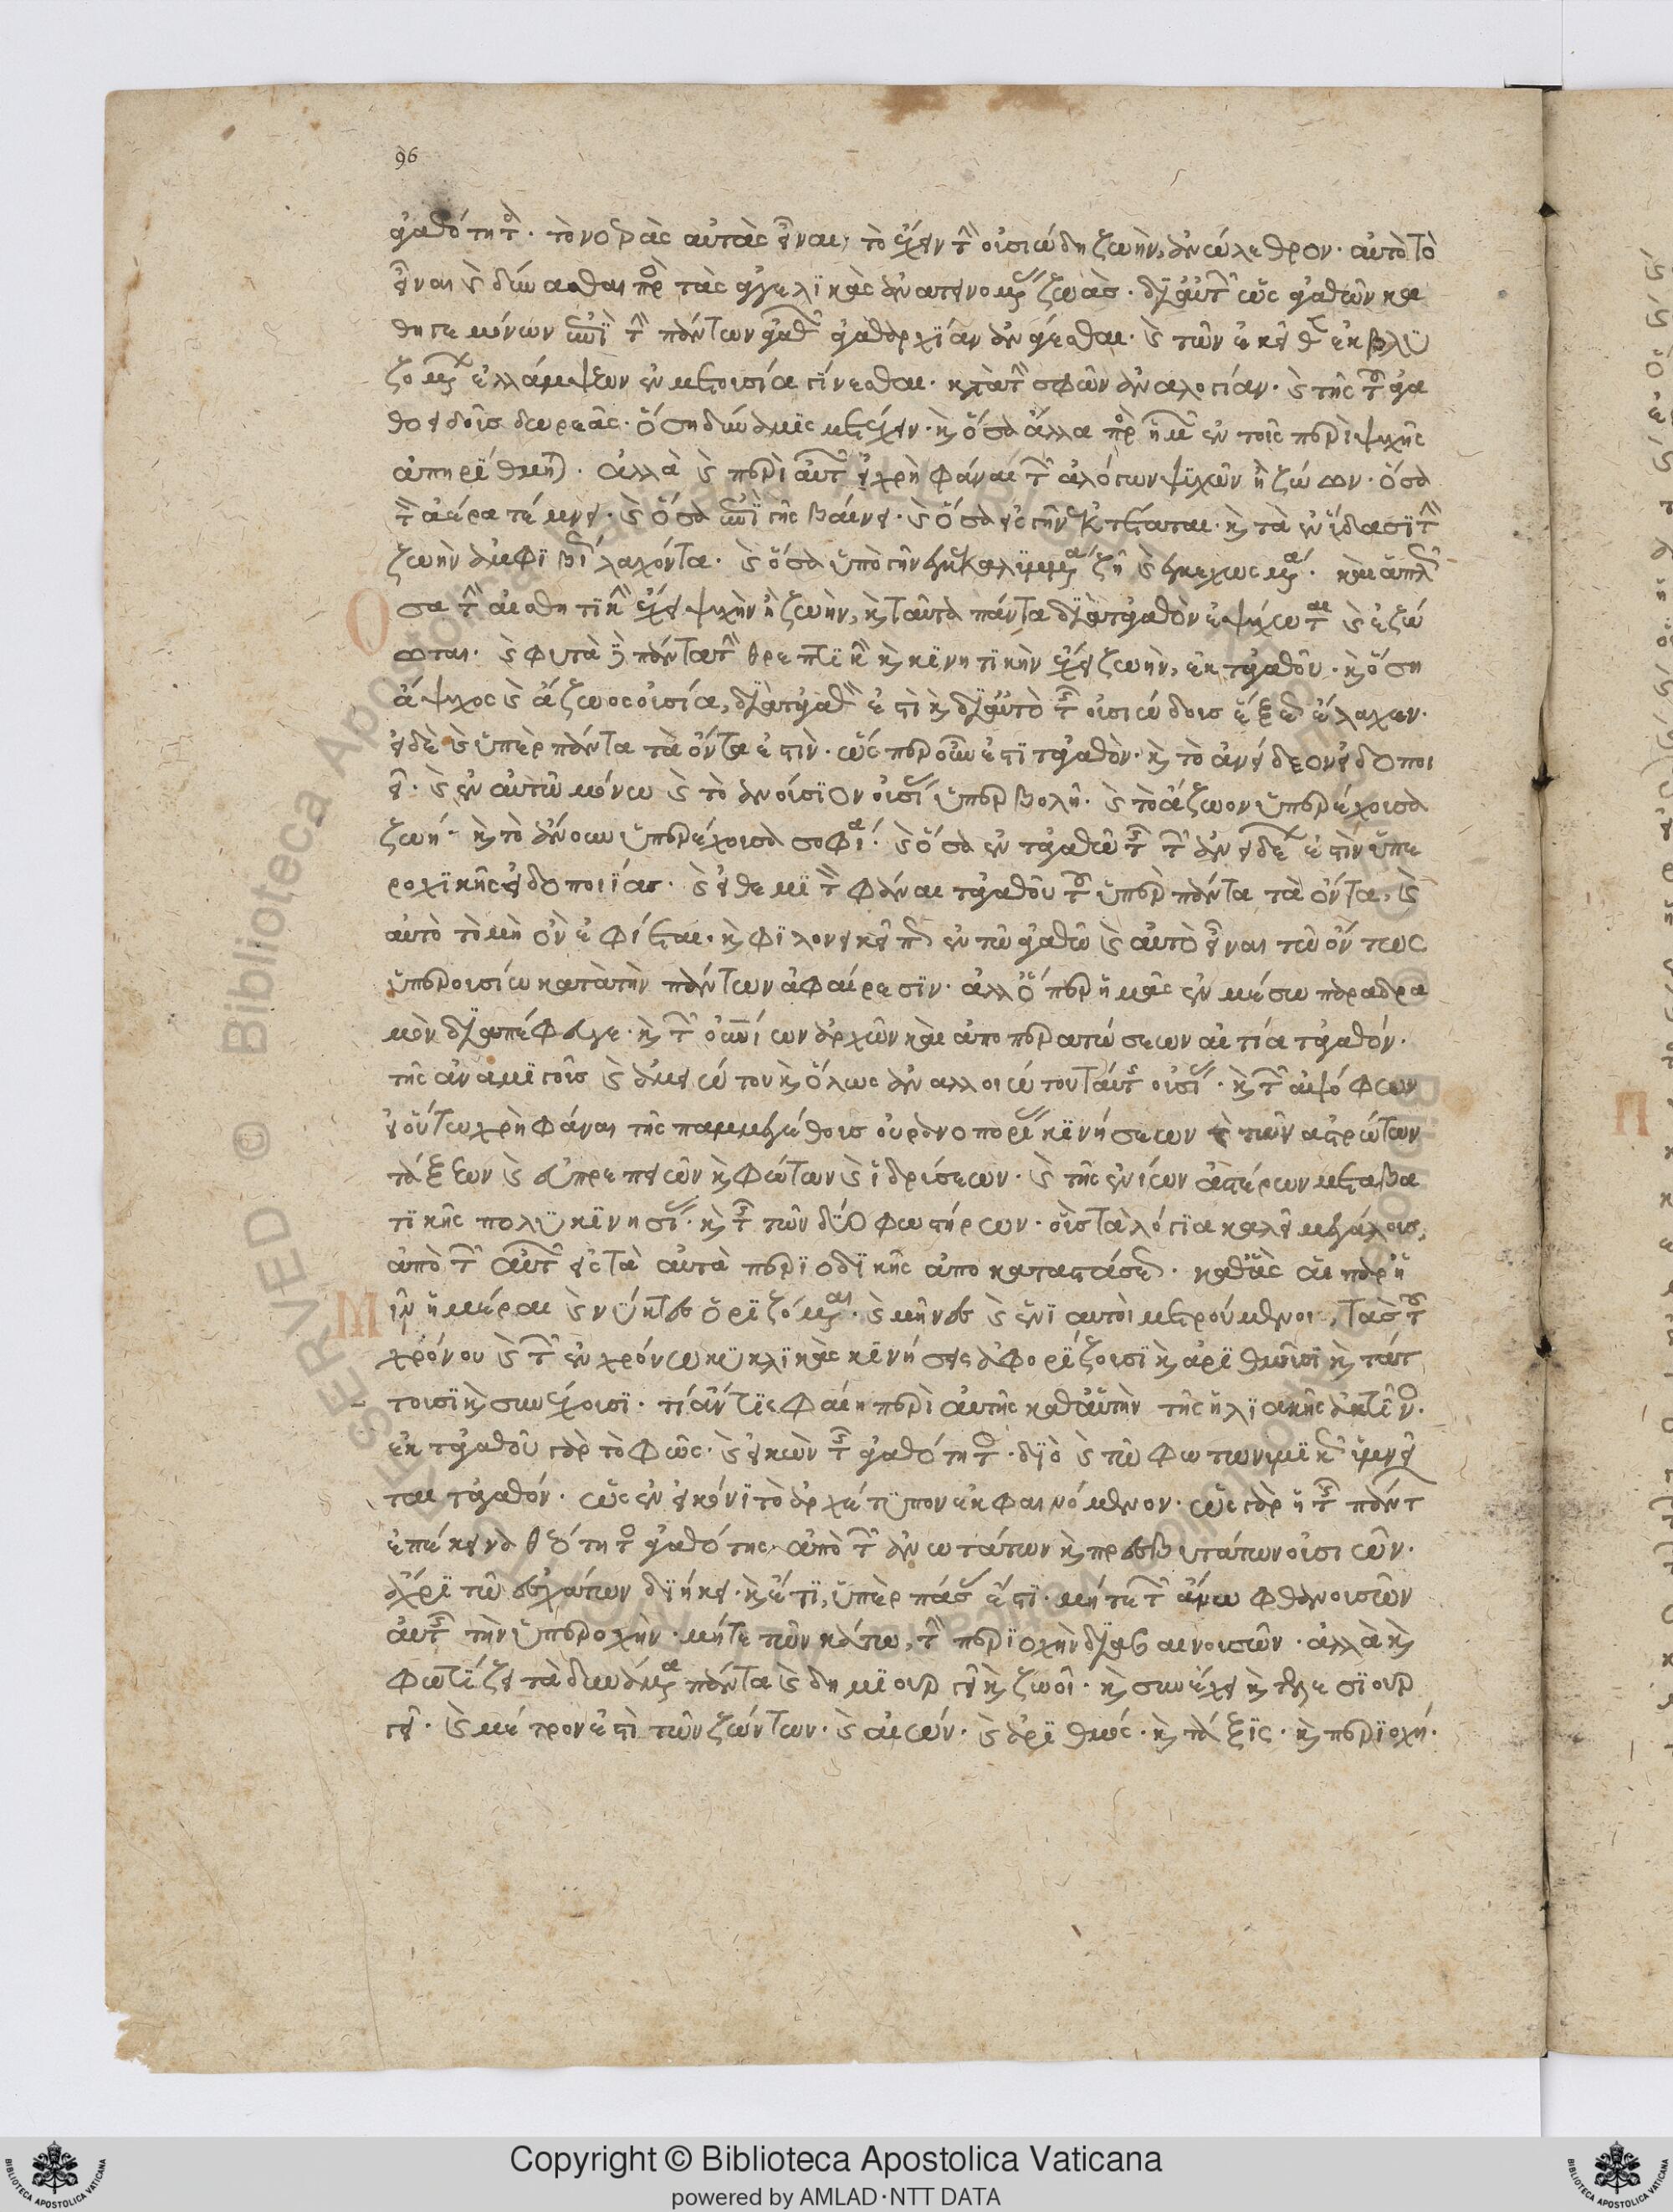 96
ἀγαθότητος. τὸ νοερὰς αὐτὰς εἶναι, τὸ ἔχειν τὴν οὐσιώδη ζωὴν, ἀνώλεθρον. αὐτὸ τὸ
εἶναι καὶ δύνασθαι πρὸς τὰς ἀγγελικὰς ἀνατεινομένας ζωάς. δι' αὐτῶν ὡς ἀγαθῶν κα
θηγεμόνων ἐπὶ τὴν πάντων ἀγαθῶν ἀγαθαρχίαν ἀνάγεσθαι. καὶ τῶν ἐκεῖθεν ἐκβλυ
ζομένων ἐλλάμψεων ἐν μετουσίᾳ γίνεσθαι. κατὰ τὴν σφῶν ἀναλογίαν. καὶ τῆς τοῦ ἀγα
θοειδοῦς δωρεᾶς. ὅση δύναμις μετέχειν. καὶ ὅσα ἄλλα πρὸς ἡμῶν ἐν τοῖς περὶ ψυχῆς
ἀπηρίθμηται. ἀλλὰ καὶ περὶ αὐτῶν εἰ χρὴ φάναι τῶν ἀλόγων ψυχῶν ἢ ζώων. ὅσα
τὸν ἀέρα τέμνει. καὶ ὅσα ἐπὶ γῆς βαίνει. καὶ ὅσα εἰς γῆν ἐκτέταται. καὶ τὰ ἐν ὕδασι τὴν
ζωὴν ἀμφιβίως λαχόντα. καὶ ὅσα ὑπὸ γῆν ἐγκεκαλυμμένα ζῇ καὶ ἐγκεχωσμένα. καὶ ἁπλῶς
ὅσα τὴν αἰσθητικὴν ἔχει ψυχὴν ἢ ζωὴν, καὶ ταῦτα πάντα διὰ τἀγαθὸν ἐψύχωται καὶ ἐζώ
ωται. καὶ φυτὰ δὲ πάντα τὴν θρεπτικὴν καὶ κινητικὴν ἔχει ζωὴν, ἐκ τἀγαθοῦ. καὶ ὅση
ἄψυχος καὶ ἄζωος οὐσία, διὰ τἀγαθὸν ἔστι καὶ δι' αὐτὸ τῆς οὐσιώδους ἕξεως ἔλαχεν.
εἰ δὲ καὶ ὑπὲρ πάντα τὰ ὄντα ἐστὶν. ὥσπερ οὖν ἐστι τἀγαθὸν. καὶ τὸ ἀνείδεον εἰδοποι
εῖ. καὶ ἐν αὐτῷ μόνῳ καὶ τὸ ἀνούσιον οὐσίας ὑπερβολή. καὶ τὸ ἄζωον ὑπερέχουσα
ζωή. καὶ τὸ ἄνουν ὑπερέχουσα σοφία. καὶ ὅσα ἐν τἀγαθῷ τῆς τῶν ἀνειδέων ἐστὶν ὑπε
ροχικῆς εἰδοποιίας. καὶ εἰ θεμιτὸν φάναι τἀγαθοῦ τοῦ ὑπὲρ πάντα τὰ ὄντα, καὶ
αὐτὸ τὸ μὴ ὂν ἐφίεται. καὶ φιλονεικεῖ πως ἐν τῷ ἀγαθῷ καὶ αὐτὸ εἶναι τῷ ὄντως
ὑπερουσίῳ κατὰ τὴν πάντων ἀφαίρεσιν. ἀλλ' ὅπερ ἡμᾶς ἐν μέσῳ παραδρα
μὸν διαπέφευγε. καὶ τῶν οὐρανίων ἀρχῶν καὶ ἀποπερατώσεων αἰτία τἀγαθόν.
τῆς ἀναμιγοῦς καὶ ἀμειώτου καὶ ὅλως ἀναλλοιώτου ταύτης οὐσίας. καὶ τῶν ἀψόφων
εἰ οὕτω χρὴ φάναι τῆς παμμεγέθους οὐρανοπορείας κινήσεων καὶ τῶν ἀστρῴων
τάξεων καὶ εὐπρεπειῶν καὶ φώτων καὶ ἱδρύσεων. καὶ τῆς ἐνίων ἀστέρων μεταβα
τικῆς πολυκινησίας. καὶ τῆς τῶν δύο φωστήρων. οὓς τὰ λόγια καλεῖ μεγάλους,
ἀπὸ τῶν αὐτῶν εἰς τὰ αὐτὰ περιοδικῆς ἀποκαταστάσεως. καθ' ἃς αἱ παρ' ἡ
μῖν ἡμέραι καὶ νύκτες ὁριζόμεναι. καὶ μῆνες καὶ ἐνιαυτοὶ μετρούμενοι, τὰς τοῦ
χρόνου καὶ τῶν ἐν χρόνῳ κυκλικὰς κινήσεις ἀφορίζουσι καὶ ἀριθμοῦσι καὶ τάτ
τουσι καὶ συνέχουσι. τί ἄν τις φαίη περὶ αὐτῆς καθ' αὑτὴν τῆς ἡλιακῆς ἀκτῖνος.
ἐκ τἀγαθοῦ γὰρ τὸ φῶς. καὶ εἰκὼν τῆς ἀγαθότητος. διὸ καὶ τῷ φωτωνυμικῶς ὑμνεῖ
ται τἀγαθόν. ὡς ἐν εἰκόνι τὸ ἀρχέτυπον ἐκφαινόμενον. ὡς γὰρ ἡ τῆς πάντων
ἐπέκεινα θεότητος ἀγαθότης ἀπὸ τῶν ἀνωτάτων καὶ πρεσβυτάτων οὐσιῶν.
ἄχρι τῶν ἐσχάτων διήκει. καὶ ἔτι, ὑπὲρ πάσας ἐστὶ. μήτε τῶν ἄνω φθανουσῶν
αὐτῆς τὴν ὑπεροχὴν. μήτε τῶν κάτω, τὴν περιοχὴν διαβαινουσῶν. ἀλλὰ καὶ
φωτίζει τὰ δυνάμενα πάντα καὶ δημιουργεῖ καὶ ζωοῖ. καὶ συνέχει καὶ τελεσιουρ
γεῖ. καὶ μέτρον ἐστὶ τῶν ζώντων. καὶ αἰών. καὶ ἀριθμός. καὶ τάξις. καὶ περιοχή.
Copyright © Biblioteca Apostolica Vaticana
powered by AMLAD·NTT DATA